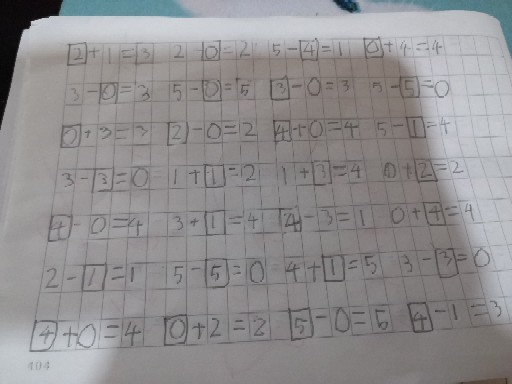 2+1=3 2-0=2 5-4=1 0+4=4
3-0=3 5-0=5 3-0=3 5-5=0
0+3=3 2-0=2 4+0=4 5-1=4
3-3=0 1+1=2 1+3=4 0+2=2
4-0=4 3+1=4 4-3=1 0+4=4
2-1=1 5-5=0 4+1=5 3-3=0
4+0=4 0+2=2 5-0=5 4-1=3
404